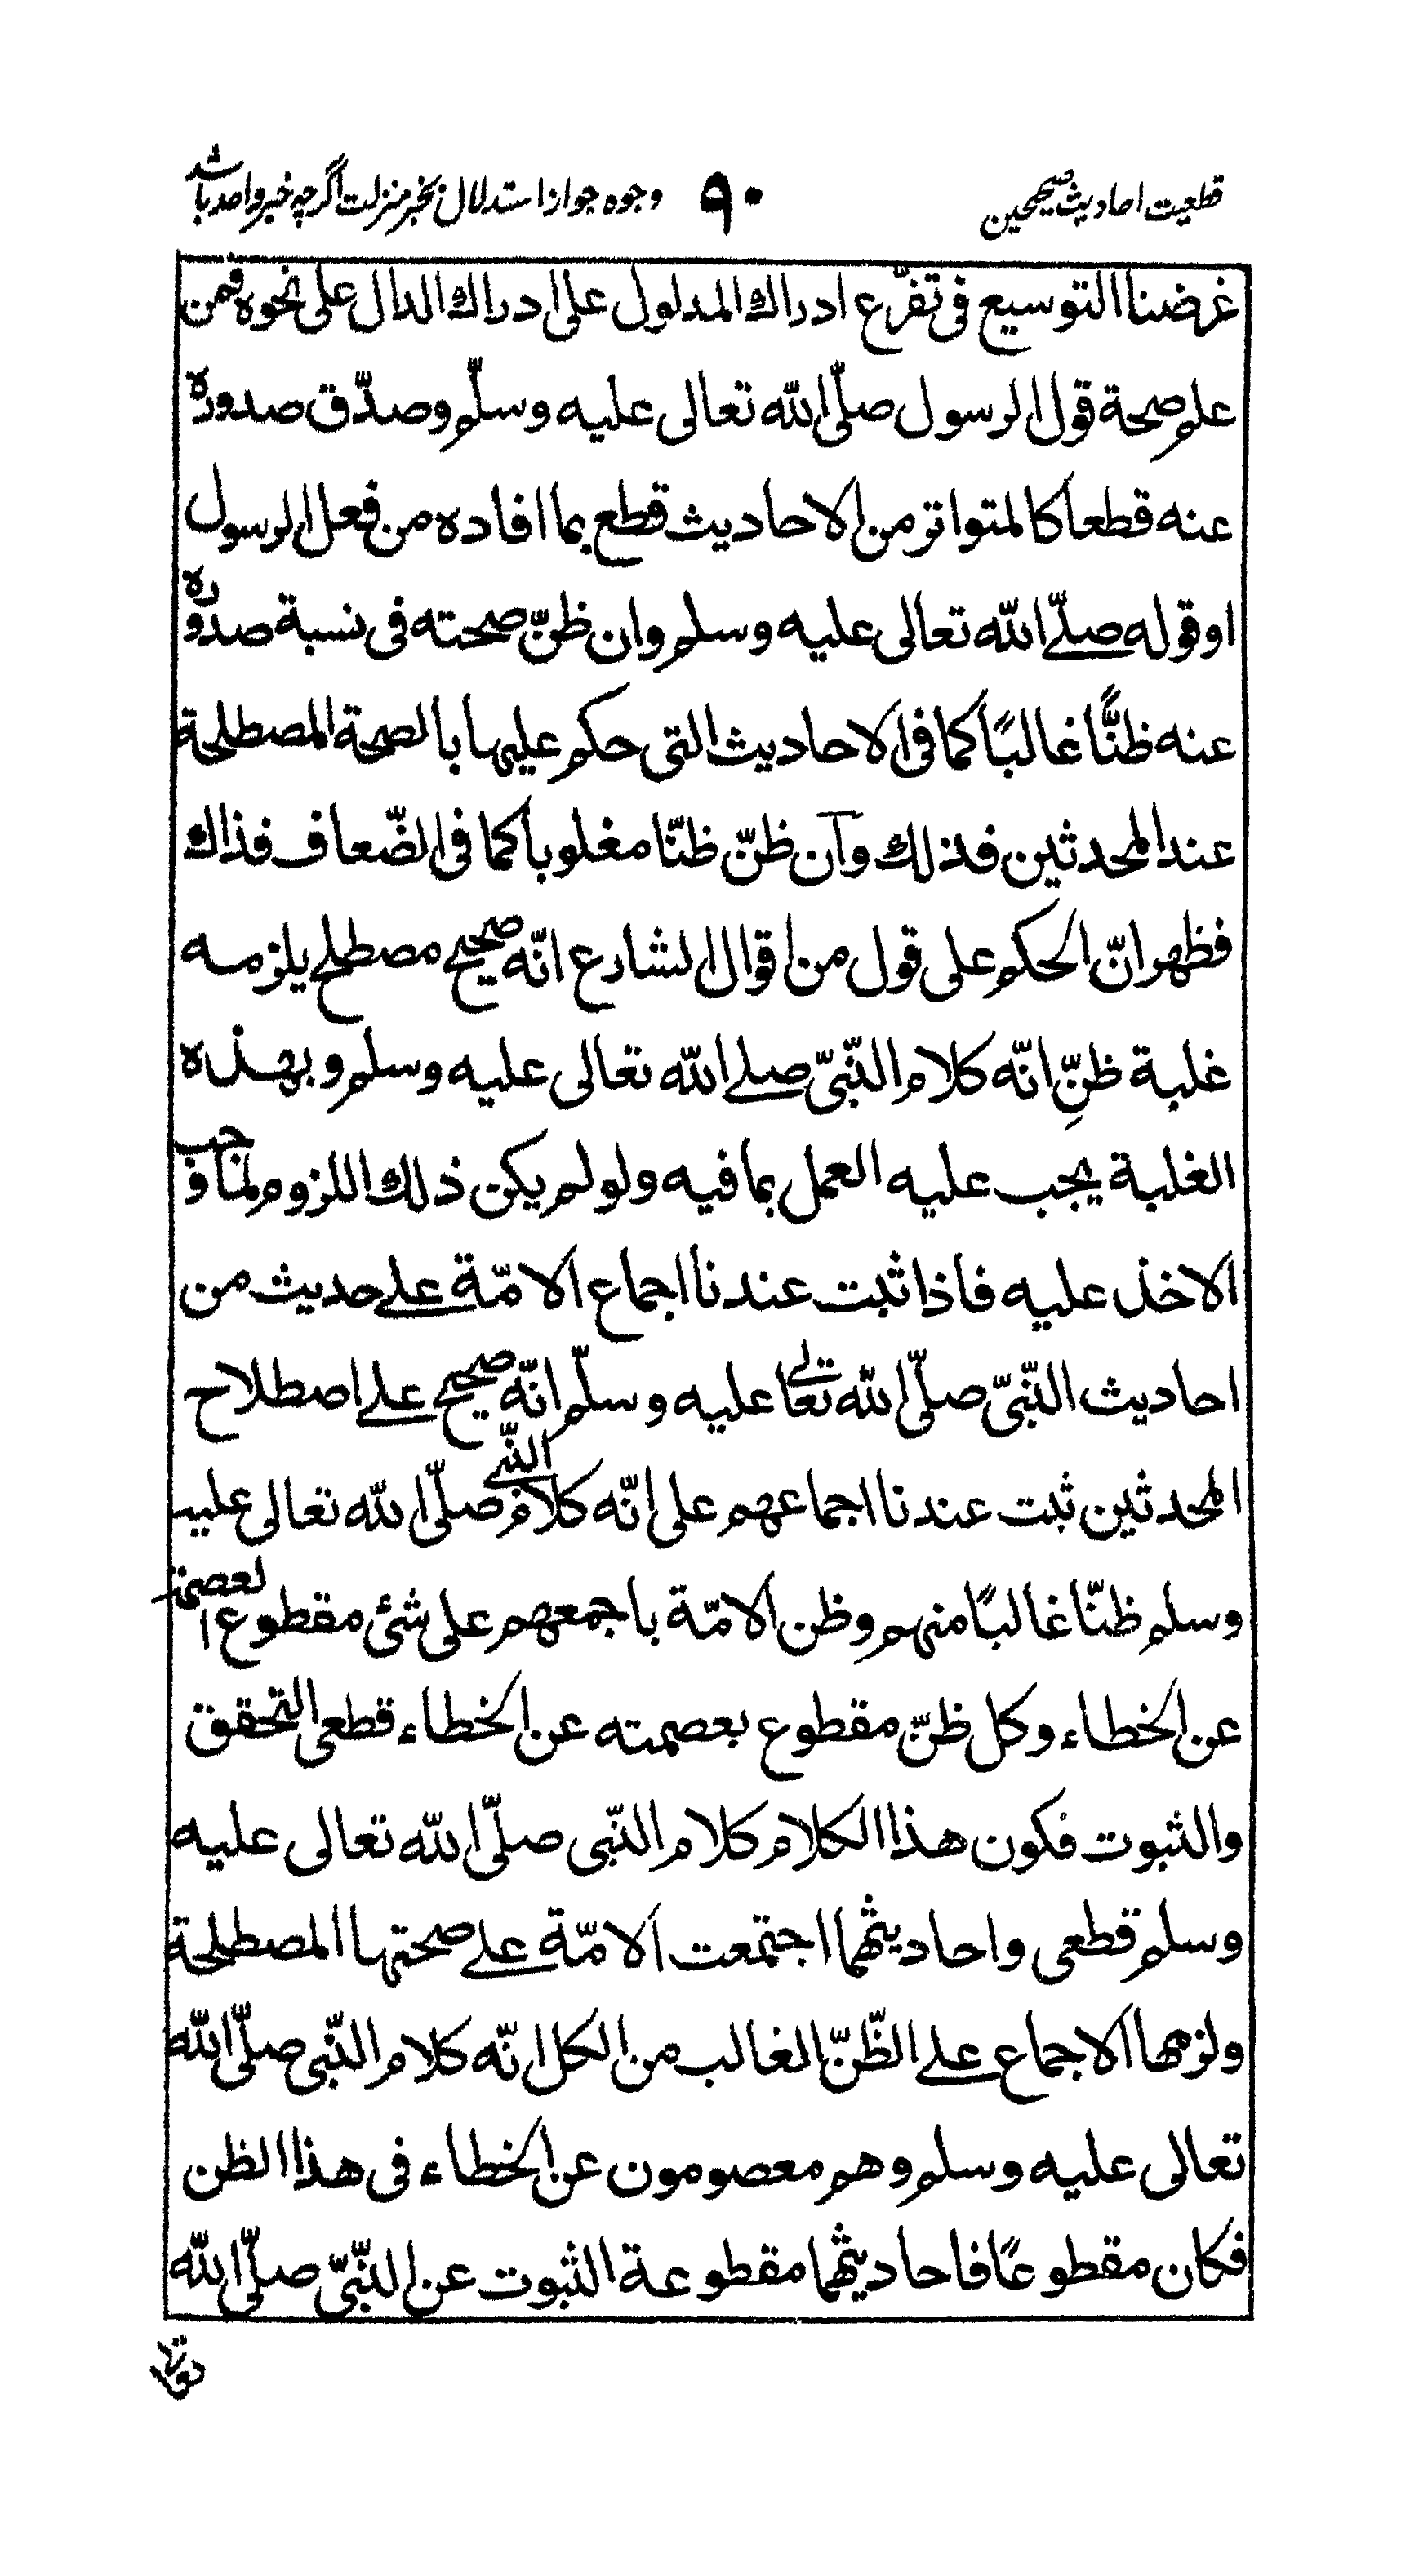 قطعیت احادیث صحیحین ۹۰ وجوه جواز استدلال بخبر منزلت اگرچه خبر واحد باشد
غرضنا التوسيع فى تفرّع ادراك المدلول على ادراك الدال على نحوه فمن
علم صحة قول الرسول صلّى الله تعالى عليه وسلّم وصدّق صدوره
عنه قطعا كالمتواتر من الاحاديث قطع بما افاده من فعل الرسول
او قوله صلّے الله تعالى عليه وسلم وان ظنّ صحته فى نسبة صدوره
عنه ظنًّا غالبًا كما فى الاحاديث التى حكم عليها بالصحة المصطلحة
عند المحدثين فذلك وآن ظنّ ظنّا مغلوبا كما فى الضّعاف فذاك
فظهر انّ الحكم على قول من اقوال الشارع انّه صحيح مصطلح يلزمه
غلبة ظنِّ انّه كلام النّبىّ صلے الله تعالى عليه وسلم وبهذه
الغلبة يجب عليه العمل بما فيه ولو لم يكن ذلك اللزوم لما وجب
الاخذ عليه فاذا ثبت عندنا اجماع الامّة علے حديث من
احاديث النّبىّ صلّى الله تعالے عليه وسلّم انّه صحيح علے اصطلاح
المحدثين ثبت عندنا اجماعهم على انّه كلام النّبے صلّى الله تعالى عليه
وسلم ظنّا غالبًا منهم وظن الامّة باجمعهم على شئ مقطوع العصمة
عن الخطاء وكل ظنّ مقطوع بعصمته عن الخطاء قطعى التحقق
والثبوت فكون هذا الكلام كلام النّبى صلّى الله تعالى عليه
وسلم قطعى واحاديثهما اجتمعت الامّة علے صحتها المصطلحة
ولزمها الاجماع علے الظّنّ الغالب من الكل انّه كلام النّبى صلّى الله
تعالى عليه وسلم وهم معصومون عن الخطاء فى هذا الظن
فكان مقطوعًا فاحاديثهما مقطوعة الثبوت عن النّبىّ صلّى الله